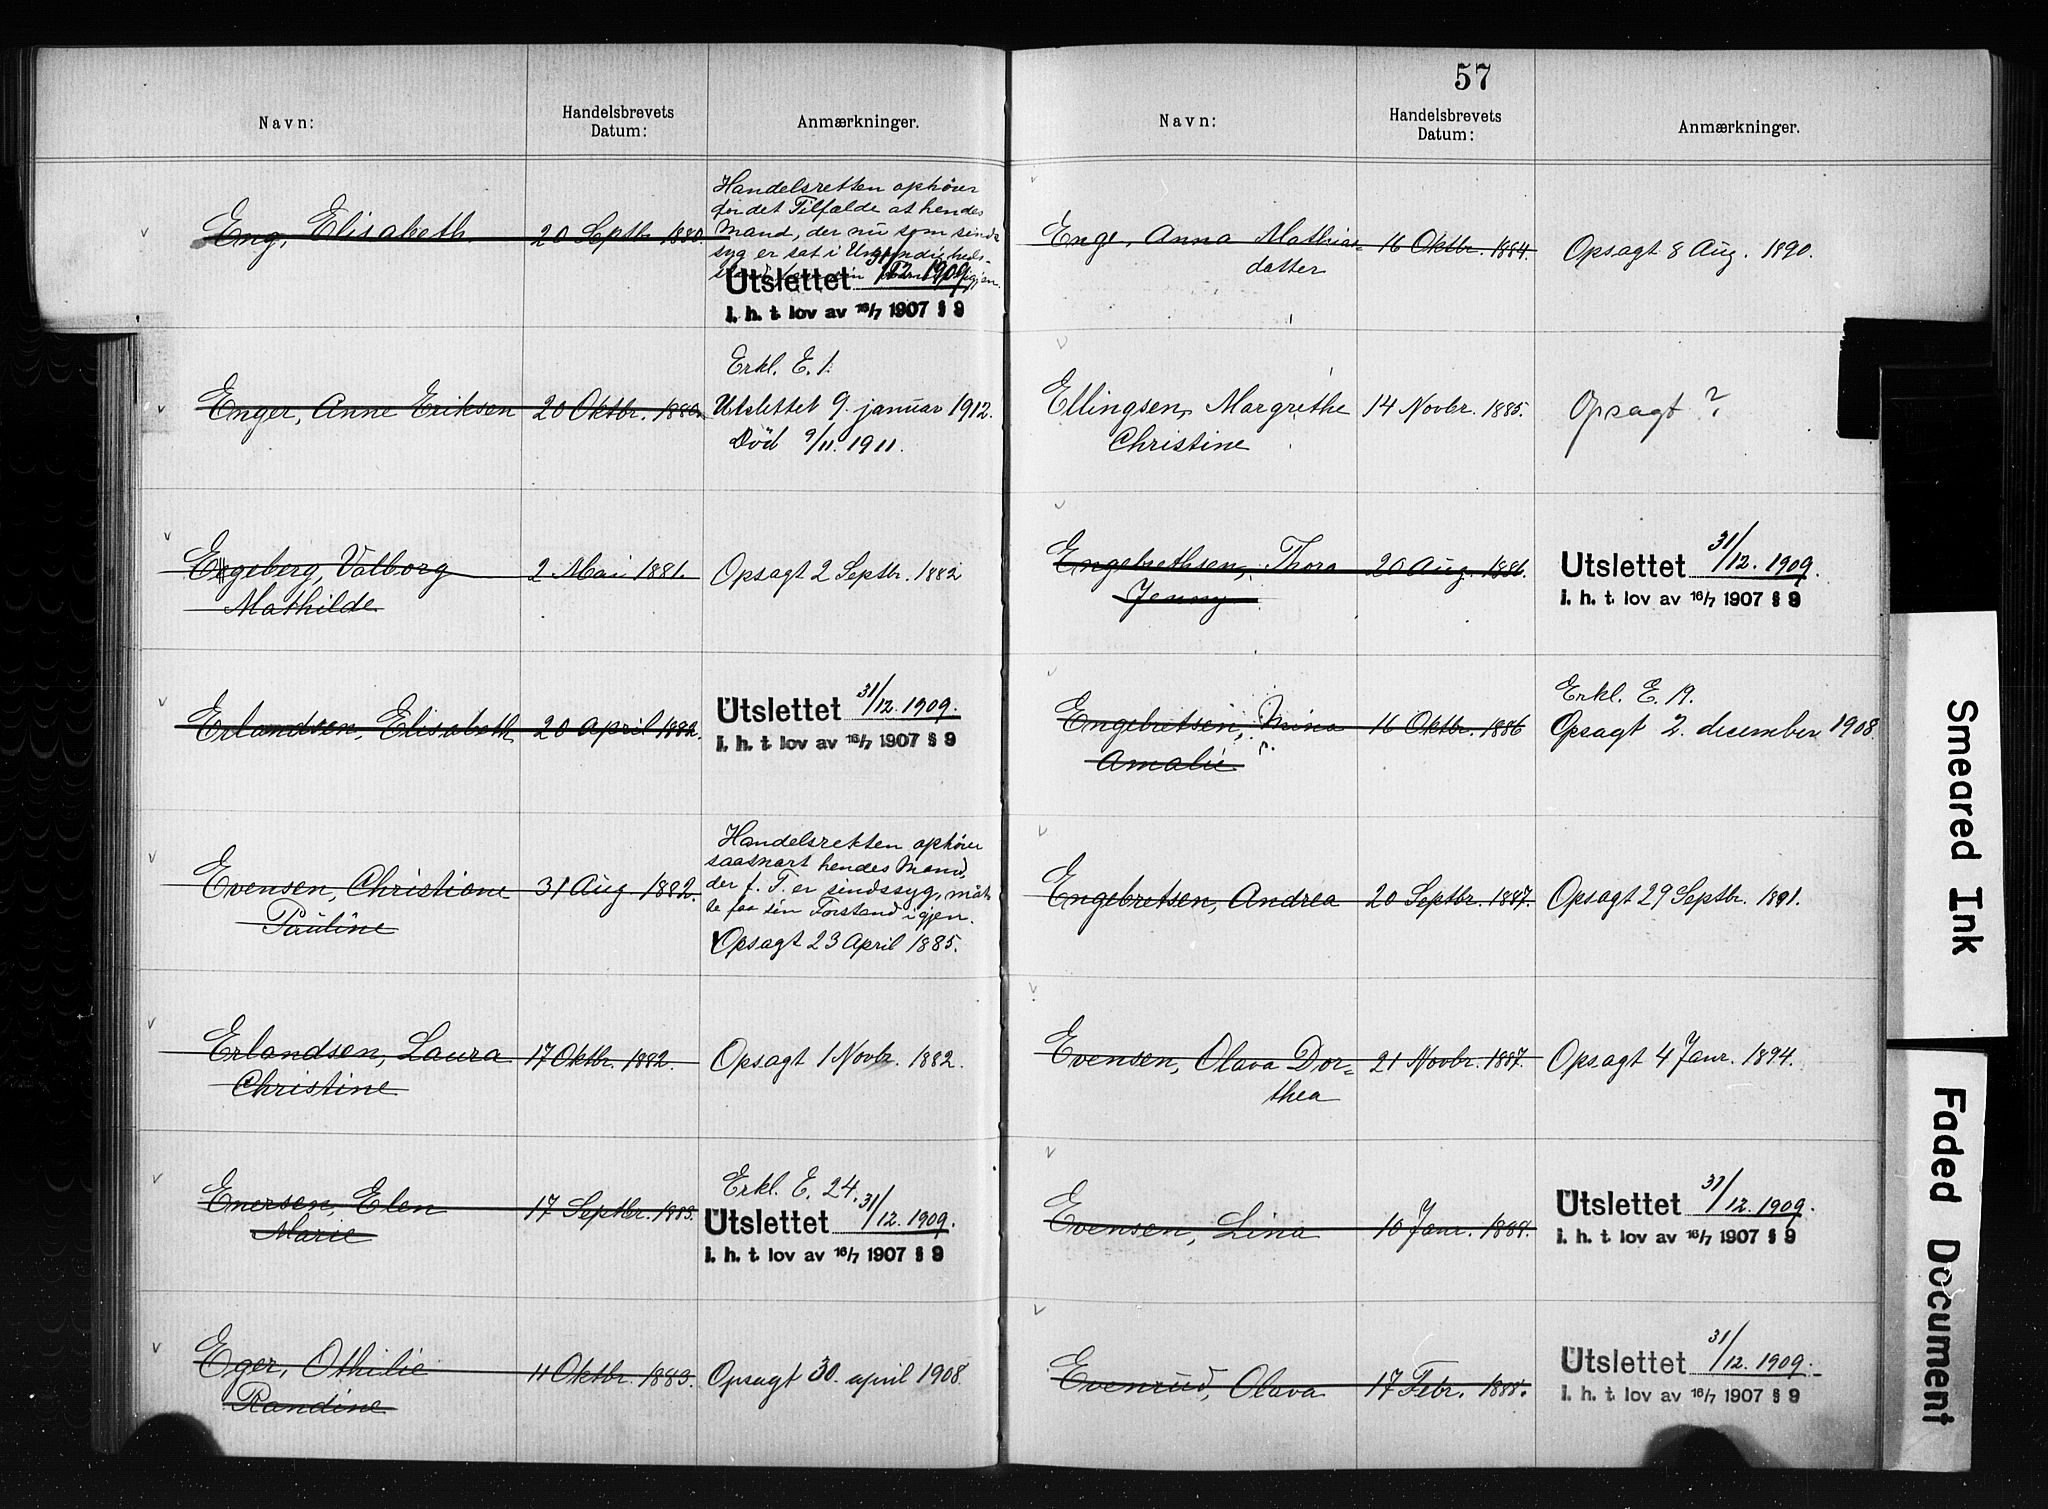 Navn:
Handelsbrevets
Datum:
Anmærkninger.
Eng, Elisabeth
20 Septbr. 1880.
Handelsretten ophörer
for det Tilfælde at hendes
Mand, der nu som sinds
syg er sat i Umyndigheds-
igjen.
Utslettet 31/12. 1909.
i. h. t. lov av 16/7 1907 § 9
Enger, Anne Eriksen
20 Oktbr. 1880.
Erkl. E. 1.
Utslettet 9. januar 1912.
Död 9/11. 1911.
Engeberg, Valborg
Mathilde
2 Mai 1881.
Opsagt 2 Septbr. 1882
Erlandsen, Elisabeth
20 April 1882.
Utslettet 31/12. 1909.
i. h. t. lov av 16/7 1907 § 9
Evensen, Christiane
Pauline
31 Aug. 1882.
Handelsretten ophörer
saasnart hendes Mand,
der f. T. er sindssyg, maat-
te faa sin Forstand igjen.
Opsagt 23 April 1885.
Erlandsen, Laura
Christine
17 Oktbr. 1882.
Opsagt 1 Novbr. 1882.
Enersen, Elen
Marie
17 Septbr. 1883.
Erkl. E. 24.
Utslettet 31/12. 1909.
i. h. t. lov av 16/7 1907 § 9
Eger, Othilie
Randine
11 Oktbr. 1883.
Opsagt 30. april 1908.
57
Navn:
Handelsbrevets
Datum:
Anmærkninger.
Enge, Anna Mathias-
datter
16 Oktbr. 1884.
Opsagt 8 Aug. 1890.
Ellingsen, Margrethe
Christine
14 Novbr. 1885.
Opsagt ?
Engebrethsen, Thora
Jenny
20 Aug. 1886.
Utslettet 31/12. 1909.
i. h. t. lov av 16/7 1907 § 9
Engebretsen, Mina
Amalie
16 Oktbr. 1886
Erkl. E. 19.
Opsagt 2. december 1908.
Engebretsen, Andrea
20 Septbr. 1887.
Opsagt 29 Septbr. 1891.
Evensen, Olava Dor-
thea
21 Novbr. 1887.
Opsagt 4 Janr. 1894.
Evensen, Lina
10 Janr. 1888.
Utslettet 31/12. 1909.
i. h. t. lov av 16/7 1907 § 9
Evenrud, Olava
17 Febr. 1888.
Utslettet 31/12. 1909.
i. h. t. lov av 16/7 1907 § 9
Smeared Ink
Faded Document